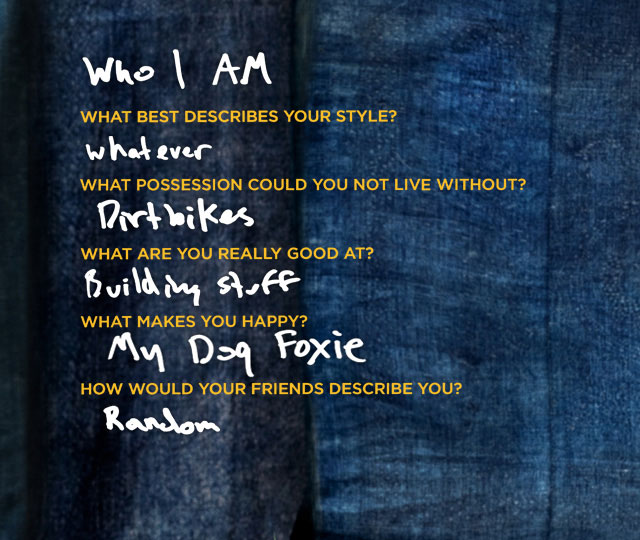 Who I AM
WHAT BEST DESCRIBES YOUR STYLE?
whatever
WHAT POSSESSION COULD YOU NOT LIVE WITHOUT?
Dirtbikes
WHAT ARE YOU REALLY GOOD AT?
Building stuff
WHAT MAKES YOU HAPPY?
My Dog Foxie
HOW WOULD YOUR FRIENDS DESCRIBE YOU?
Random